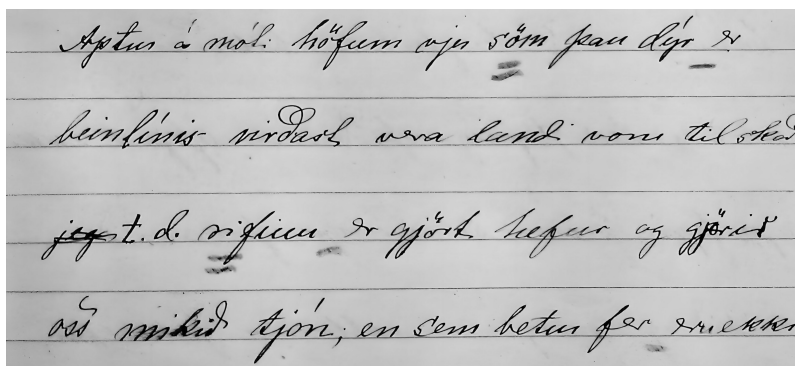 Aptur á móti höfum vjer söm þau dýr er
beinlínis virðast vera landi voru til skað
jeg t. d. rifinn er gjört hefur og gjörir
oss mikið tjón, en sem betur fer eru ekki